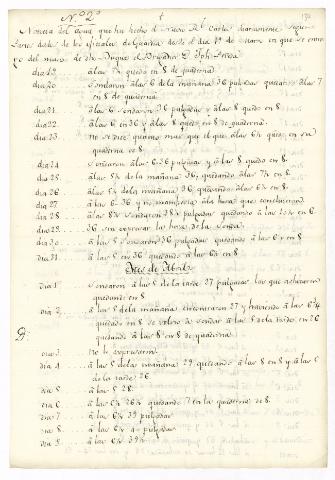 N.º 2º
Noticia del agua que ha hecho el Navio Rl. Carlos diariamente segun
Partes dados de los oficiales de Guardia desde el dia 19 de Marzo en que se entre
gó del mando de dho Buque el Brigadier D. Jph
dia 19. à las 7½ quedo en 8 de quaderna
dia 20 Sondaron à las 6 de la mañana 36 pulgadas quedando à las 7
en 8 de quaderna
dia 21. à las 6 Sondaron 36 pulgadas y à las 8 quedo en 8.
dia 22. à las 6 en 36 y à las 8 quedo en 8 de quaderna.
dia 23. no se dice quanto mas que el que à las 6½ quedo en su
quaderna de 8.
dia 24 Sondaron à las 6 36 pulgadas y à las 8 quedo en 8.
dia 25. à las 5½ de la mañana 36, quedando à las 7½ en 8.
dia 26 à las 5½ de la mañana 36, quedando à las 6½ en 8.
dia 27 à las 6 36 y no manifiesta à la hora que concluieron
dia 28 à las 8½ Sondaron 38½ pulgadas quedando à las en 6
dia 29. 36 sin expresar las horas de la Sonda
dia 30. à las 5 Sondaron 36 pulgadas quedando à las 6 en 8
dia 31. à las 6 en 36 quedando à las 6½ en 8
Mes de Abril
dia 1 Sondaron à las 5 de la tarde 27 pulgadas las que achicaron
quedando en 8
dia 2. à las 5 de la mañana encontraron 27 y haviendo à las 6¼
quedado en 8 se volvio à Sondar à las 5 de la tarde en 26
quedando à las 8 en 8 de quaderna
dia 3 No lo expresaron
dia 4 à las 5 de la mañana 29 quedando à las 8 en 8 y à las 5
de la tarde 26.
dia 5 à las 6 28.
dia 6 à las 6½ 26½ quedando en la quaderna de 8.
dia 7 à las 6½ 39 pulgadas
dia 8 à las 6½ 4 pulgadas
dia 9 à las 6½ 39½